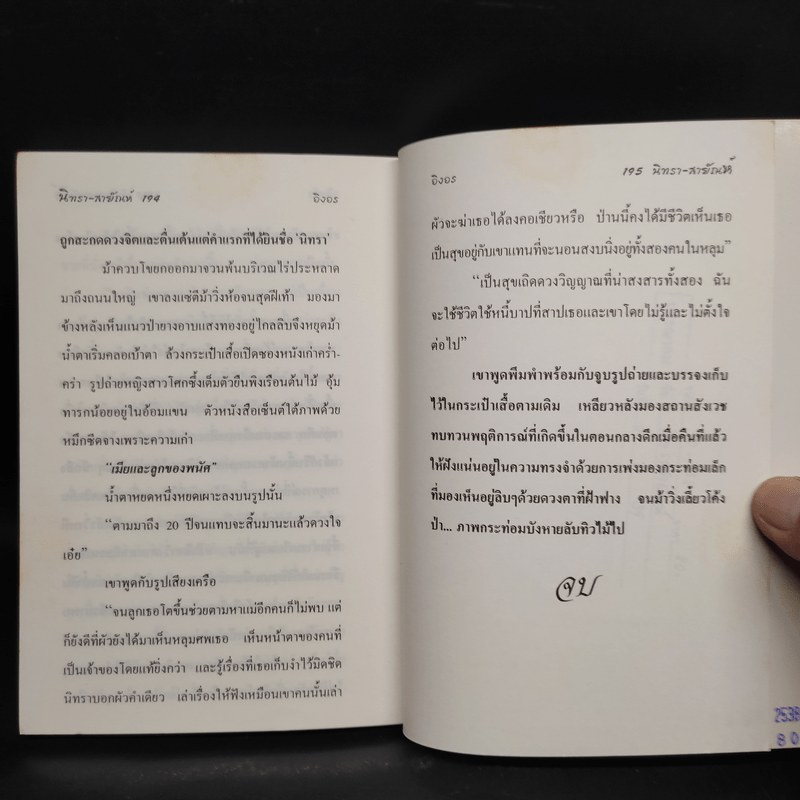 นิทรา-สายัณห์ 194
อิงอร
ถูกสะกดดวงจิตและตื่นเต้นแต่คำแรกที่ได้ยินชื่อ 'นิทรา'
ม้าควบโขยกออกมาจวนพ้นบริเวณไร่ประหลาด
มาถึงถนนใหญ่ เขาลงแซ่ตีม้าวิ่งห้อจนสุดฝีเท้า มองมา
ข้างหลังเห็นแนวป่ายางอาบแสงทองอยู่ไกลลิบจึงหยุดม้า
น้ำตาเริ่มคลอเบ้าตา ล้วงกระเป๋าเสื้อเปิดซองหนังเก่าคร่ำ-
คร่า รูปถ่ายหญิงสาวโศกซึ้งเต็มตัวยืนพิงเรือนต้นไม้ อุ้ม
ทารกน้อยอยู่ในอ้อมแขน ตัวหนังสือเซ็นต์ใต้ภาพด้วย
หมึกซีดจางเพราะความเก่า
“เมียและลูกของพนัศ”
น้ำตาหยดหนึ่งหยดเผาะลงบนรูปนั้น
“ตามมาถึง 20 ปีจนแทบจะสิ้นมานะแล้วดวงใจ
เอ๋ย”
เขาพูดกับรูปเสียงเครือ
“จนลูกเธอโตขึ้นช่วยตามหาแม่อีกคนก็ไม่พบ แต่
ก็ยังดีที่ผัวยังได้มาเห็นหลุมศพเธอ เห็นหน้าตาของคนที่
เป็นเจ้าของโดยแท้ยิ่งกว่า และรู้เรื่องที่เธอเก็บงำไว้มิดชิด
นิทราบอกผัวคำเดียว เล่าเรื่องให้ฟังเหมือนเขาคนนั้นเล่า
อิงอร
195 นิทรา-สายัณห์
ผัวจะฆ่าเธอได้ลงคอเชียวหรือ ป่านนี้คงได้มีชีวิตเห็นเธอ
เป็นสุขอยู่กับเขาแทนที่จะนอนสงบนิ่งอยู่ทั้งสองคนในหลุม”
“เป็นสุขเถิดดวงวิญญาณที่น่าสงสารทั้งสอง ฉัน
จะใช้ชีวิตใช้หนี้บาปที่สาปเธอและเขาโดยไม่รู้และไม่ตั้งใจ
ต่อไป”
เขาพูดพึมพำพร้อมกับจูบรูปถ่ายและบรรจงเก็บ
ไว้ในกระเป๋าเสื้อตามเดิม เหลียวหลังมองสถานสังเวช
ทบทวนพฤติการณ์ที่เกิดขึ้นในตอนกลางดึกเมื่อคืนที่แล้ว
ให้ฝังแน่นอยู่ในความทรงจำด้วยการเพ่งมองกระท่อมเล็ก
ที่มองเห็นอยู่ลิบๆด้วยดวงตาที่ฝ้าฟาง จนม้าวิ่งเลี้ยวโค้ง
ป่า... ภาพกระท่อมบังหายลับทิวไม้ไป
จบ
2538
80